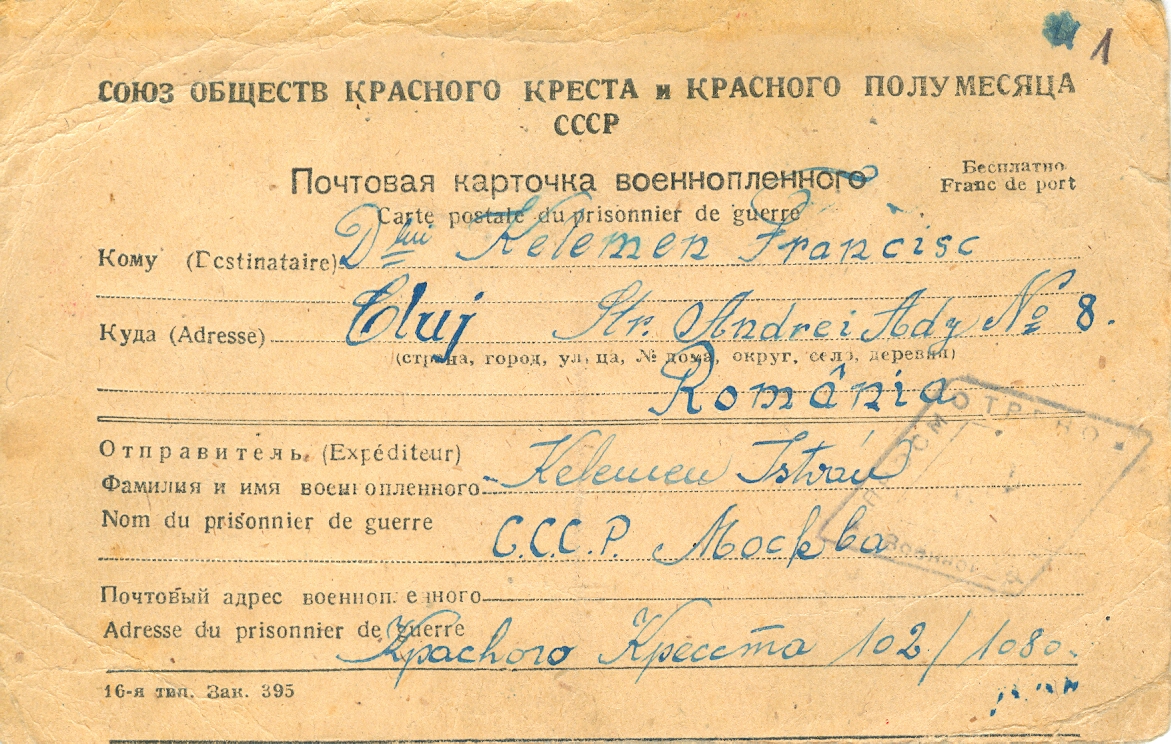 1
СОЮЗ ОБЩЕСТВ КРАСНОГО КРЕСТА и КРАСНОГО ПОЛУМЕСЯЦА
СССР
Почтовая карточка военнопленного
Бесплатно
Franc de port
Carte postale du prisonnier de guerre
Кому (Destinataire) Dlui Kelemen Francisc
Куда (Adresse) Cluj Str. Andrei Ady No 8.
(страна, город, улица, № дома, округ, село, деревня)
România
Отправитель (Expéditeur)
Фамилия и имя военнопленного Kelemen István
Nom du prisonnier de guerre
С.С.С.Р. Москва
Почтовый адрес военнопленного
Adresse du prisonnier de guerre
Красного Кресста 102/1080.
16-я тип. Зак. 395
ПРОСМОТРЕНО
Военной